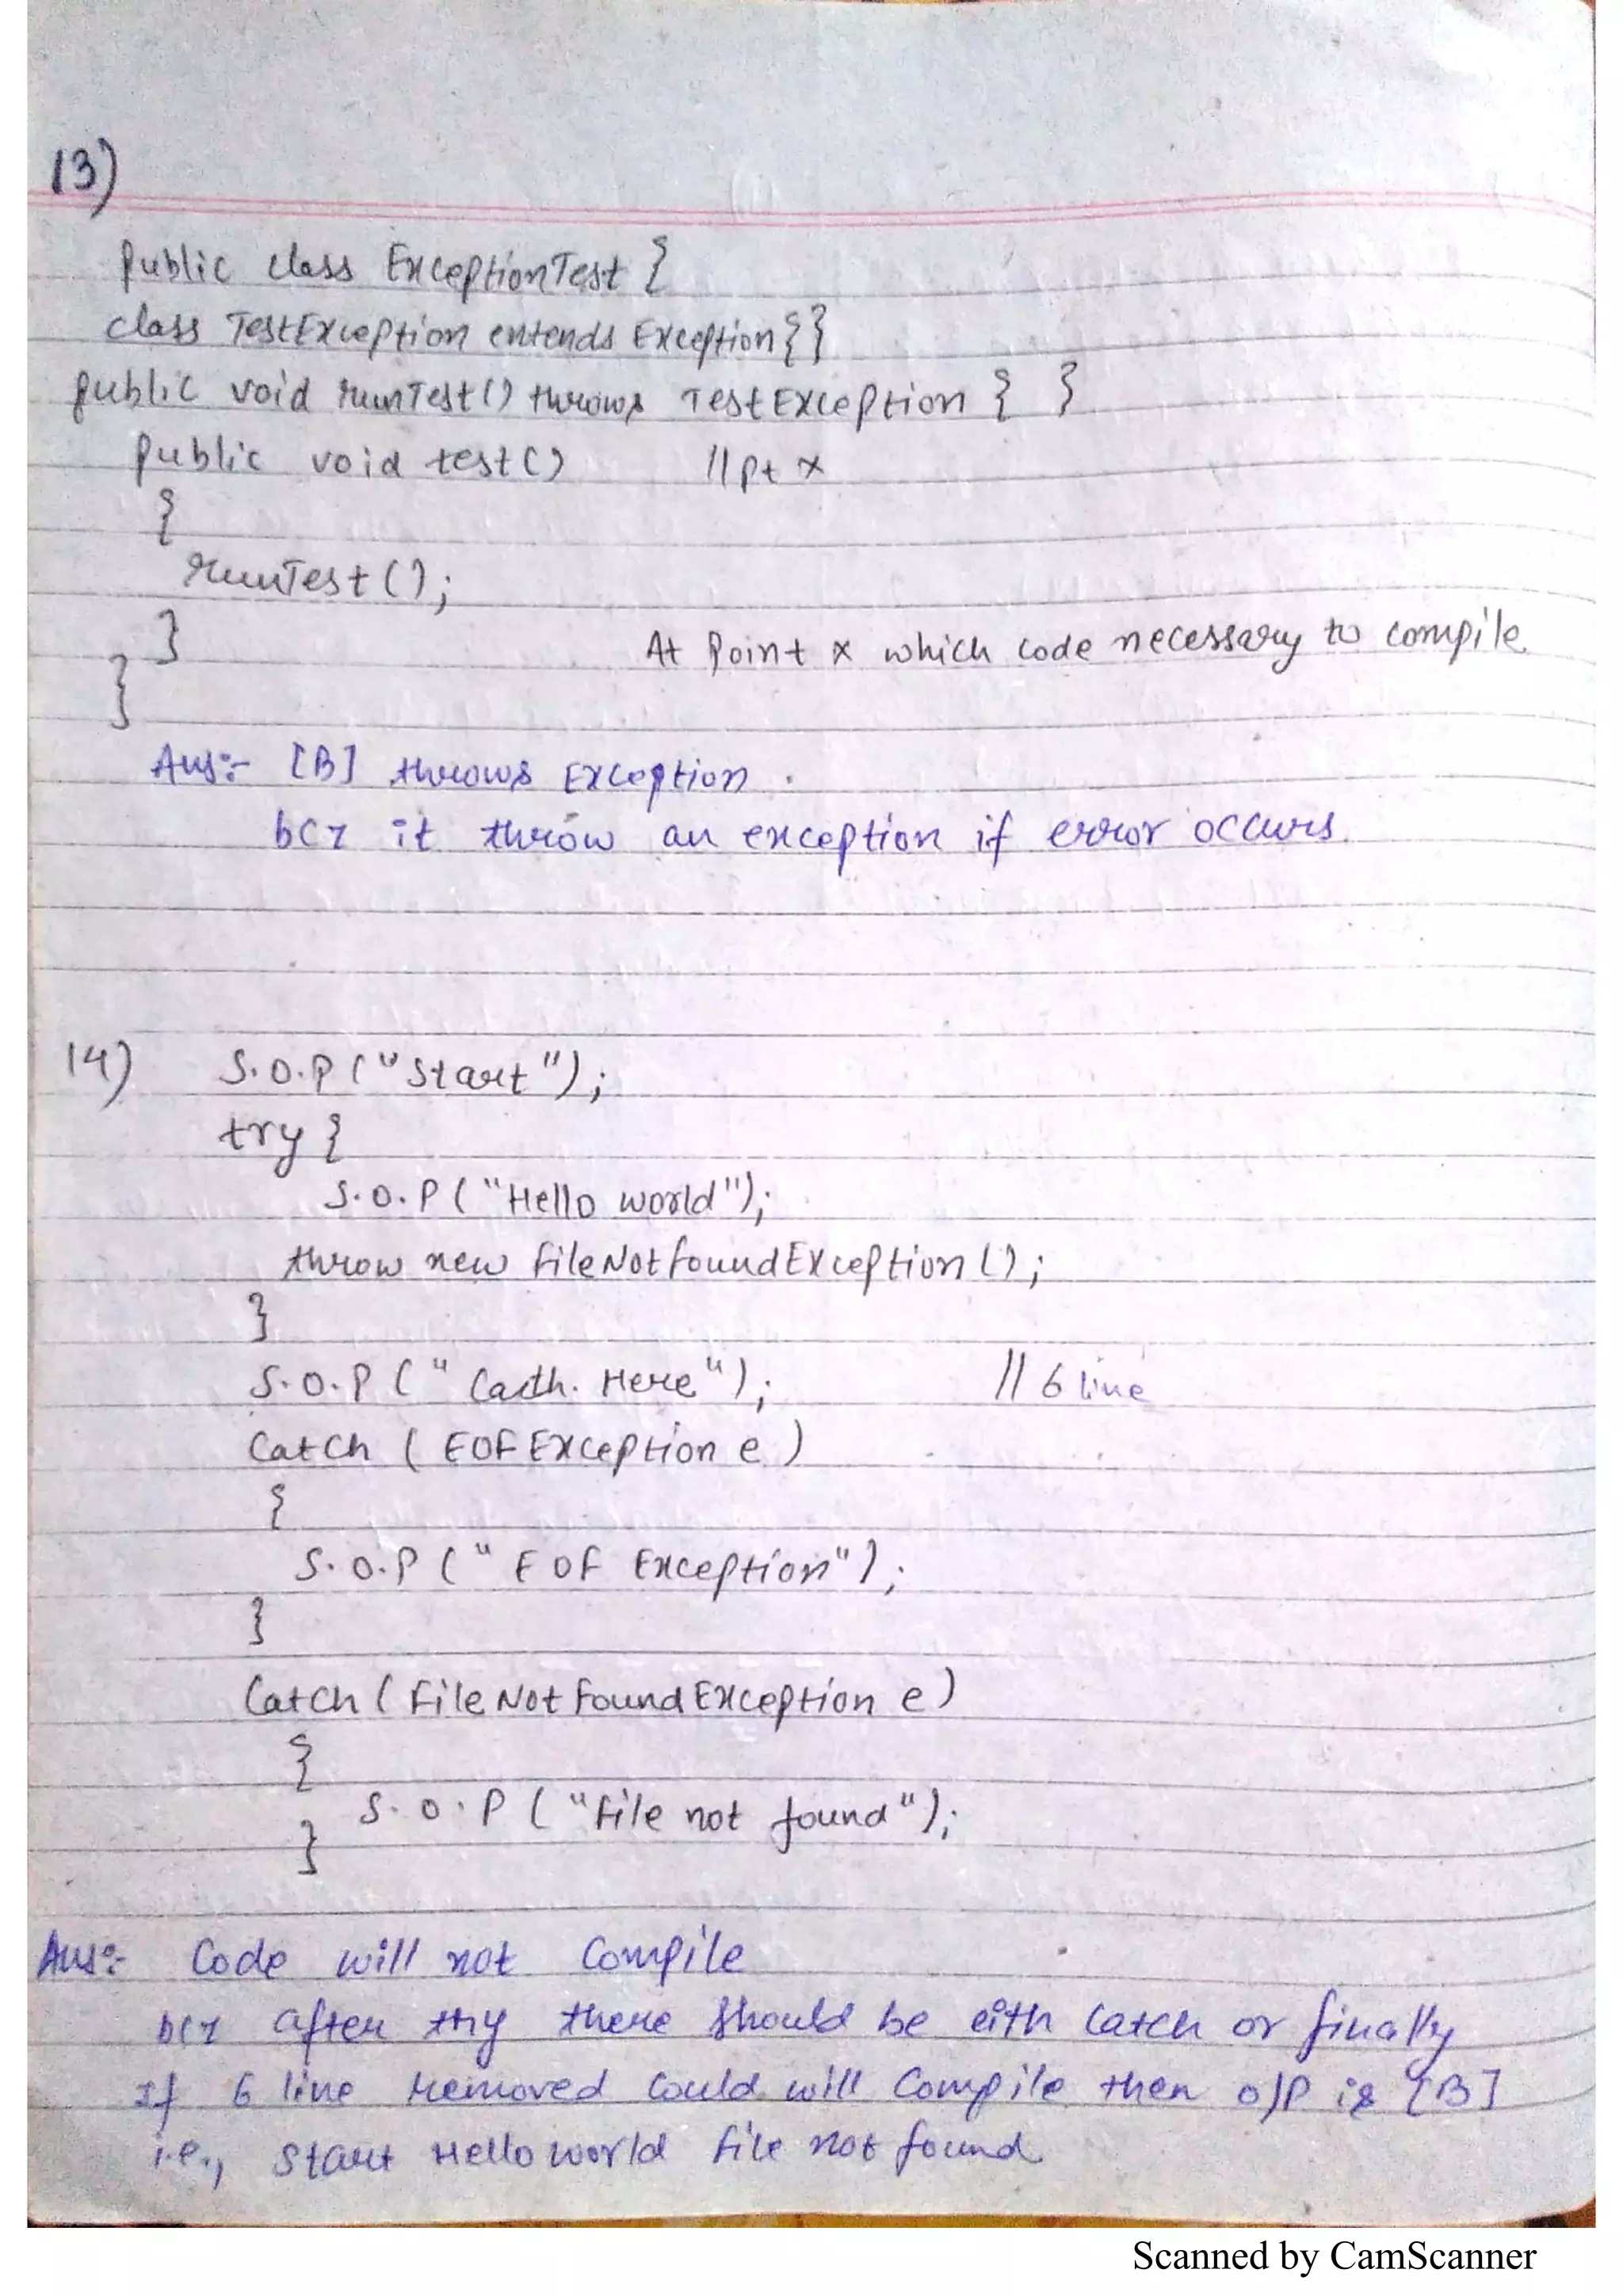 13)
public class ExceptionTest {
class TestException extends Exception {}
public void runTest() throws TestException { }
public void test() // pt x
{
runTest();
}
At point x which code necessary to compile
}
Ans:- [B] throws Exception.
bcz it throw an exception if error occurs.
14) S.O.P ("Start");
try {
S.O.P ("Hello world");
throw new fileNotfoundException();
}
S.O.P (" Cacth. Here"); // 6 line
Catch ( EOFException e )
{
S.O.P (" E OF Exception");
}
Catch ( FileNotFoundException e )
{
S.O.P ("file not found");
}
Ans:- Code will not Compile
bcz after try there should be eith catch or finally
If 6 line removed could will compile then o/p is [B]
i.e., Start Hello world file not found
Scanned by CamScanner